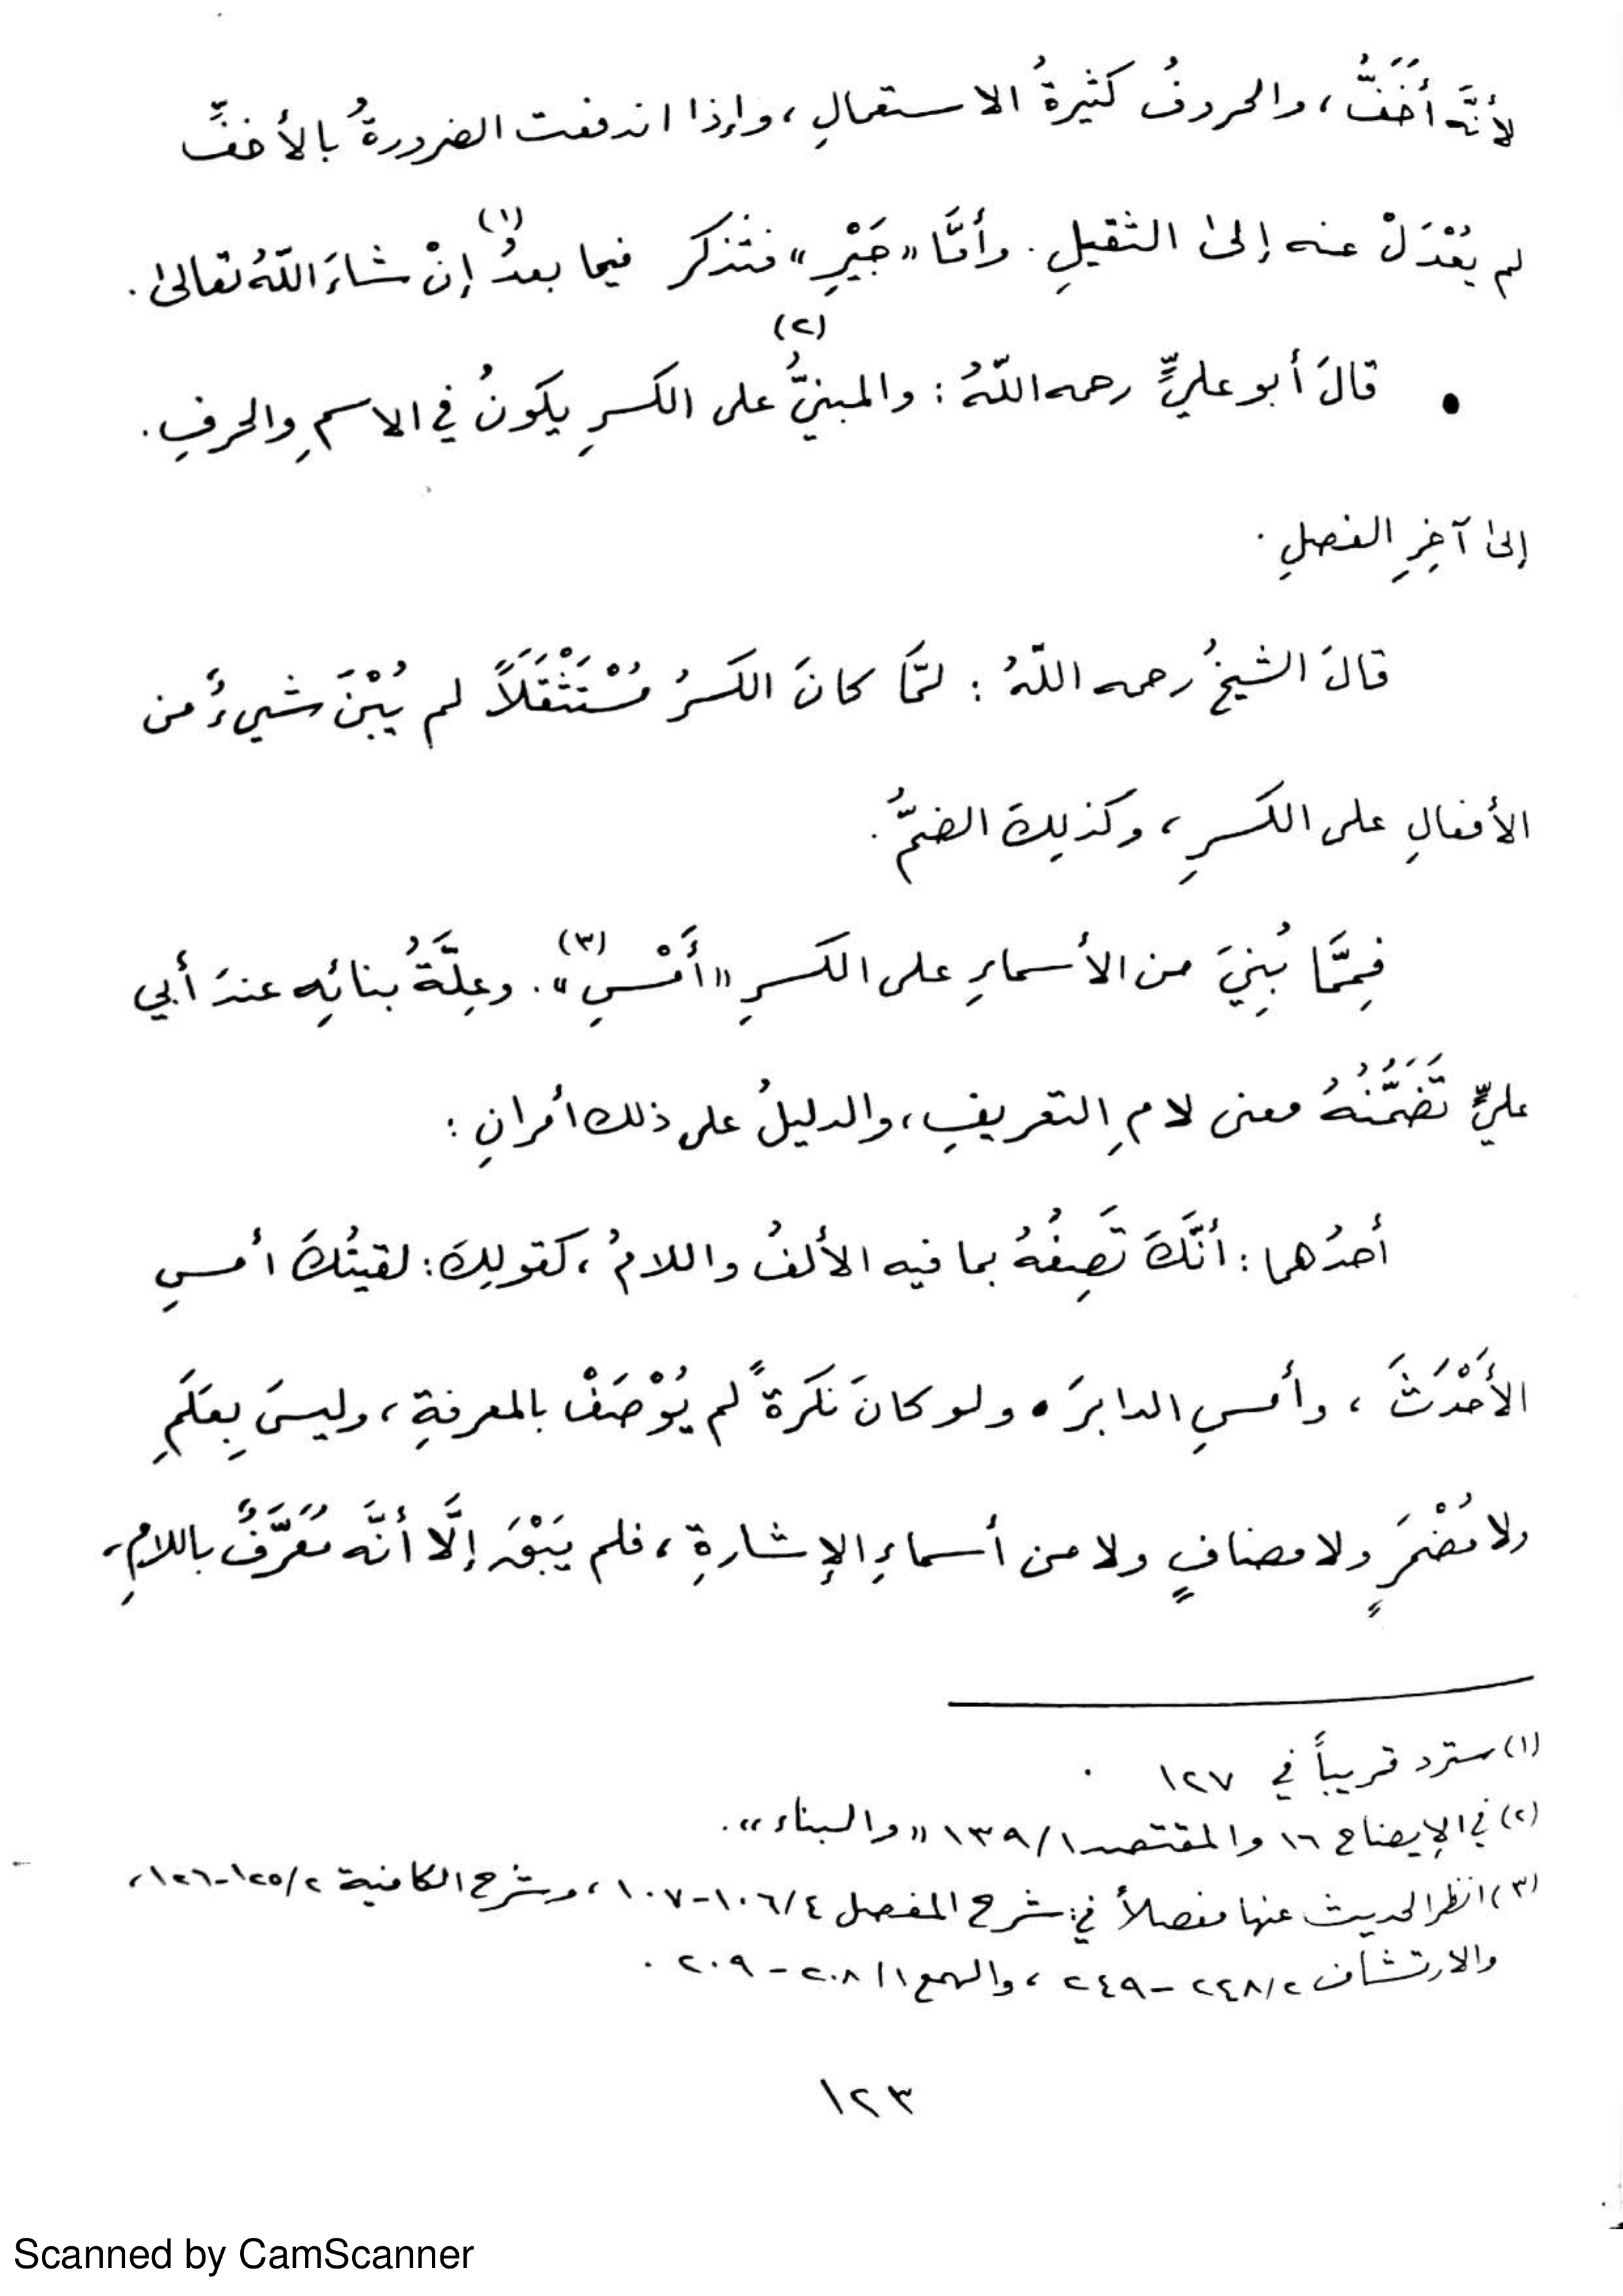 لأنَّه أَخَفُّ، والحروفُ كثيرةُ الاستعمالِ، وإذا اندفعت الضرورةُ بالأخفِّ
لم يُعْدَلْ عنه إلىٰ الثقيلِ. وأمَّا «جَيْرِ» فتذكر فيما بعدُ(١) إنْ شاءَ اللّهُ تعالىٰ.
• قالَ أبو عليٍّ رحمه اللّهُ: والمبنيُّ(٢) على الكسرِ يكونُ في الاسمِ والحرفِ.
إلىٰ آخِرِ الفصلِ.
قالَ الشيخُ رحمه اللّهُ: لمَّا كانَ الكَسرُ مُسْتَثْقَلاً لم يُبْنَ شيءٌ من
الأفعالِ على الكَسرِ، وكذلِكَ الضمُّ.
فِممَّا بُنِيَ من الأسماءِ على الكَسرِ «أَمْسِ»(٣). وعِلَّةُ بنائِه عندَ أبي
عليٍّ تَضَمُّنُهُ معنى لامِ التعريفِ، والدليلُ على ذلك أمرانِ:
أحدُهما: أنَّكَ تَصِفُهُ بما فيه الألفُ واللامُ، كقولِكَ: لقيتُكَ أمسِ
الأَحْدَثَ، وأمسِ الدابرَ. ولو كانَ نَكَرةً لم يُوْصَفْ بالمعرفةِ، وليسَ بِعَلَمِ
ولا مُضْمَرٍ ولا مضافٍ ولا من أسماءِ الإشارةِ، فلم يَبْقَ إلَّا أنَّه مُعَرَّفٌ باللامِ،
(١) سترد قريباً في ١٢٧ .
(٢) في الإيضاح ١٦ والمقتصد ١/١٣٩ «والبناء».
(٣) انظر الحديث عنها مفصلاً في: شرح المفصل ٤/١٠٦-١٠٧، وشرح الكافية ٢/١٢٥-١٢٦،
والارتشاف ٢/٢٤٨-٢٤٩، والهمع ١/٢٠٨-٢٠٩.
١٢٣
Scanned by CamScanner